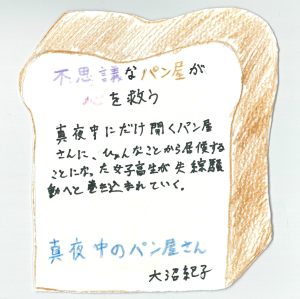 不思議なパン屋が
心を救う
真夜中にだけ開くパン屋
さんに、ひょんなことから居候する
ことになった女子高生が失綜騒
動へと巻き込まれていく。
真夜中のパン屋さん
大沼紀子